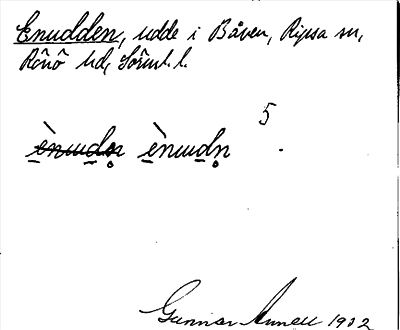 Enudden, udde i Båven, Ripsa sn,
Rönö hd, Sörml. l.
5
ènɯdn̥ ènɯdn̥
Gunnar Annell 1932